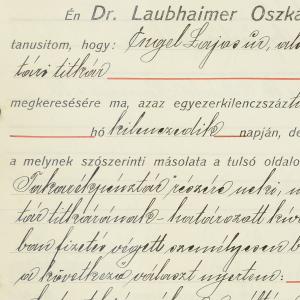 Én Dr. Laubhaimer Oszka
tanusitom, hogy: Engel Lajos úr, al
tári titkár
megkeresésére ma, azaz egyezerkilenczszázt
hó kilenczedik napján, de
a melynek szószerinti másolata a tulsó oldalo
Takarékpénztár részére neki, m
tár titkárának - határozott kivá
ban fizetés végett személyesen b
a következő választ nyertem: